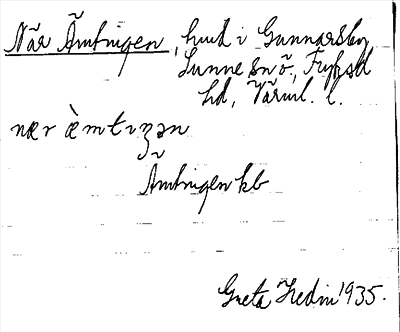 När Ämtvigen, hmd i Gunnarsby,
Sunne sn ö., Fryksd
hd, Värml. l.
nær æ̀mtɩʒən
Ämtvigen kb
Greta Hedin 1935.